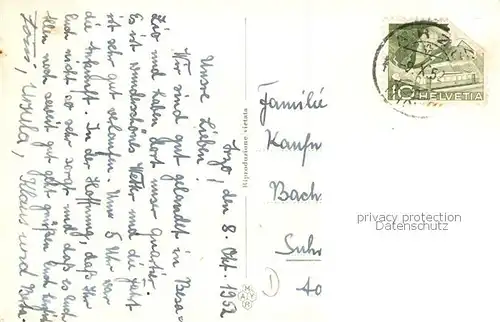 Jozo, den 8. Okt. 1952
Unsre Lieben!
Wir sind gut gelandet in Besa=
zio und haben dort unser Quartier.
Es ist wunderschönes Wetter und die Fahrt
ist sehr gut verlaufen. Um 5 Uhr war
die Ankunft. In der Hoffnung, daß Ihr
Euch nicht so sehr sorgt und daß es Euch
allen noch soweit gut geht grüßen Euch
Ursula, Klaus und Beta.
Riproduzione vietata
Familie
Kaufm
Bach
Suhr
MAYR
10 HELVETIA
52
privacy protection
Datenschutz